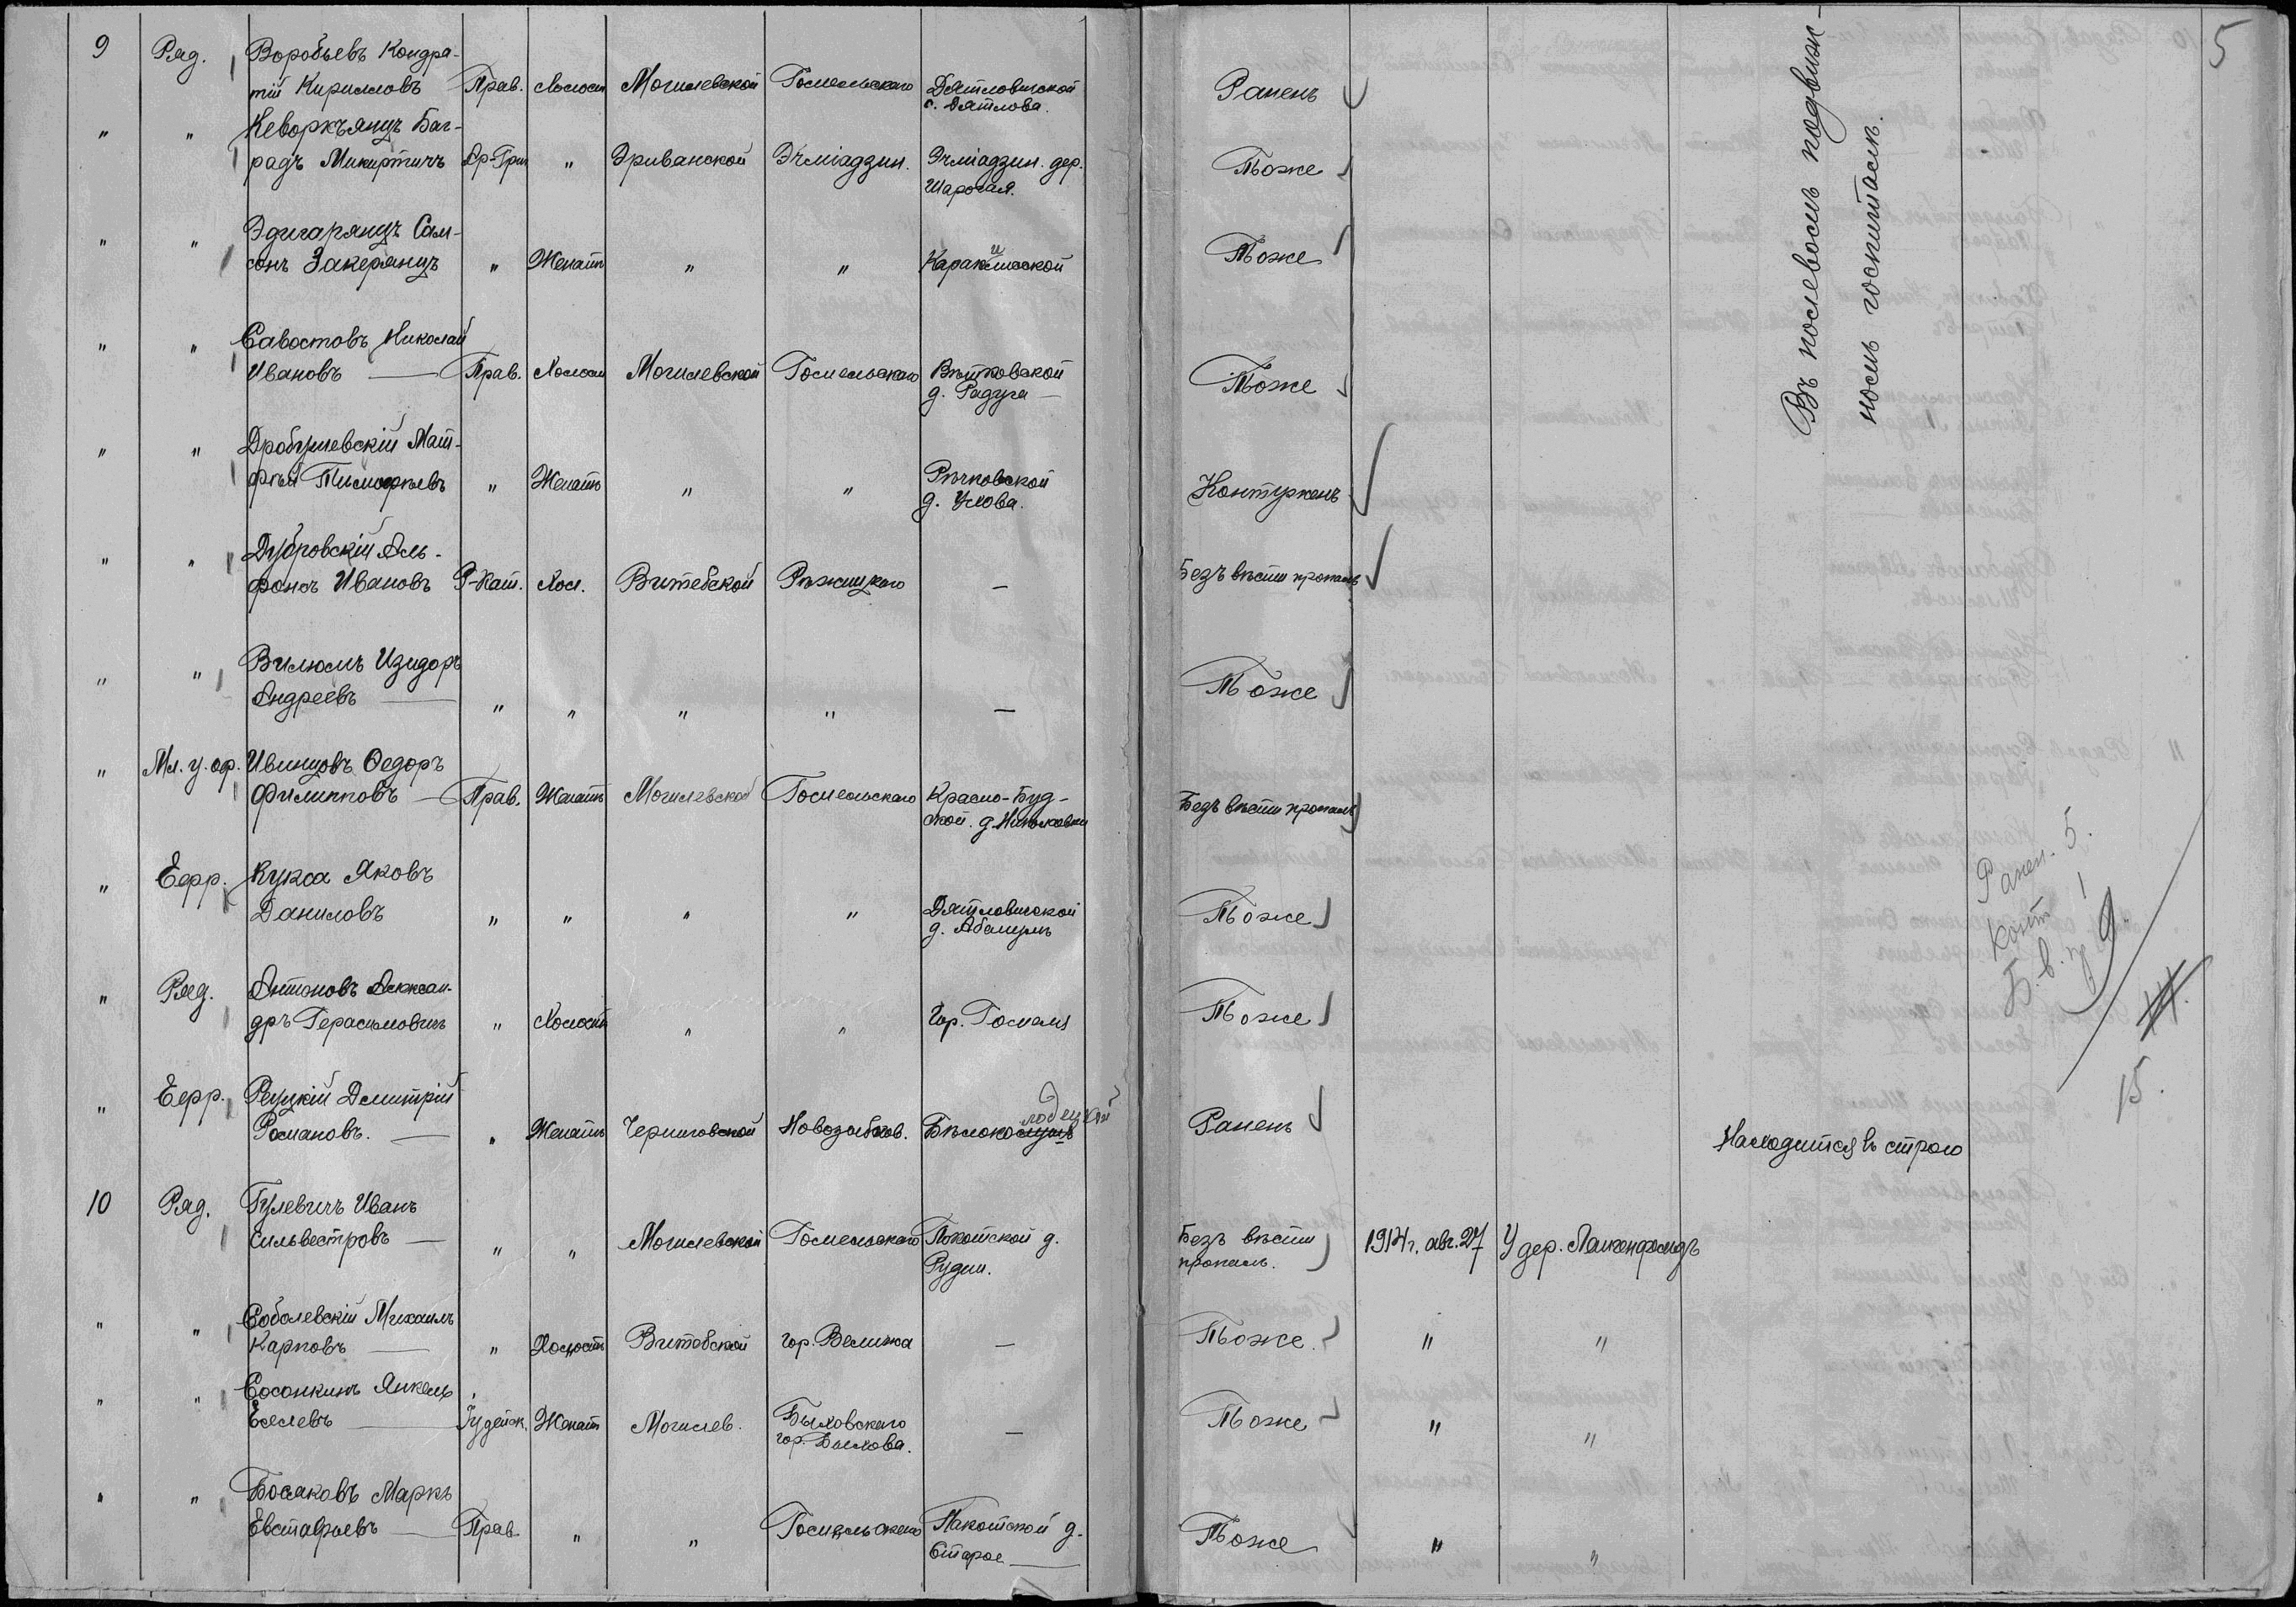 5
9 Ряд. Воробьевъ Кондра-
тій Кирилловъ Прав. Холост Могилевской Гомельскаго Дятловичской Раненъ
с. Дятлова.
" " Кеворкъянцъ Баг-
радъ Микиртичъ Ар-Григ " Эриванской Эчміадзин. Эчміадзин. дер. Тоже
" " Эдигарянцъ Сам-
сонъ Закерянцъ " Женатъ " " Караклисской Тоже
" " Савостовъ Николай
Ивановъ — Прав. Холост Могилевской Гомельскаго Вѣтковской Тоже
д. Радуга —
" " Дробушевскій Мат-
фѣй Тимофѣевъ " Женатъ " " Рѣчковской Контуженъ
д. Ухова.
" " Дубровскій Аль-
фонсъ Ивановъ Р-Кат. Хол. Витебской Рѣжицкаго — Безъ вѣсти пропалъ
" " Вилюмъ Изидоръ
Андреевъ — " " " " — Тоже
" Мл. у. оф. Ивинцовъ Ѳедоръ
Филипповъ — Прав. Женатъ Могилевской Гомельскаго Красно-Буд- Безъ вѣсти пропалъ
ской. д.
" Ефр. Кукса Яковъ
Даниловъ " " " " Дятловичской Тоже
д.
" Ряд. Антоновъ Алексан-
дръ Герасимовичъ " Холостъ " " Гор. Гомеля Тоже
" Ефр. Рецкій Дмитрій
Романовъ. — " Женатъ Черниговской Новозыбков. Бѣлоколодецкой Раненъ Находится въ строю
10 Ряд. Гулевичъ Иванъ
Сильвестровъ — " " Могилевской Гомельскаго Покотской д. Безъ вѣсти 1914 г. авг. 27 У дер.
Рудни. пропалъ.
" " Соболевскій Михаилъ
Карповъ — " Холостъ Витебской гор. Велижа — Тоже. " "
" " Сосонкинъ Янкель
Еселевъ — Іудейск. Женат Могилев. Быховскаго — Тоже " "
гор. Быхова.
" " Босяковъ Маркъ
Евстафьевъ — Прав. " " Гомельскаго Покотской д. Тоже " "
Старое —
Въ полевомъ подвиж-
номъ госпиталѣ.
Ранен. 5.
Конт 1
Б. в. п 9
15.